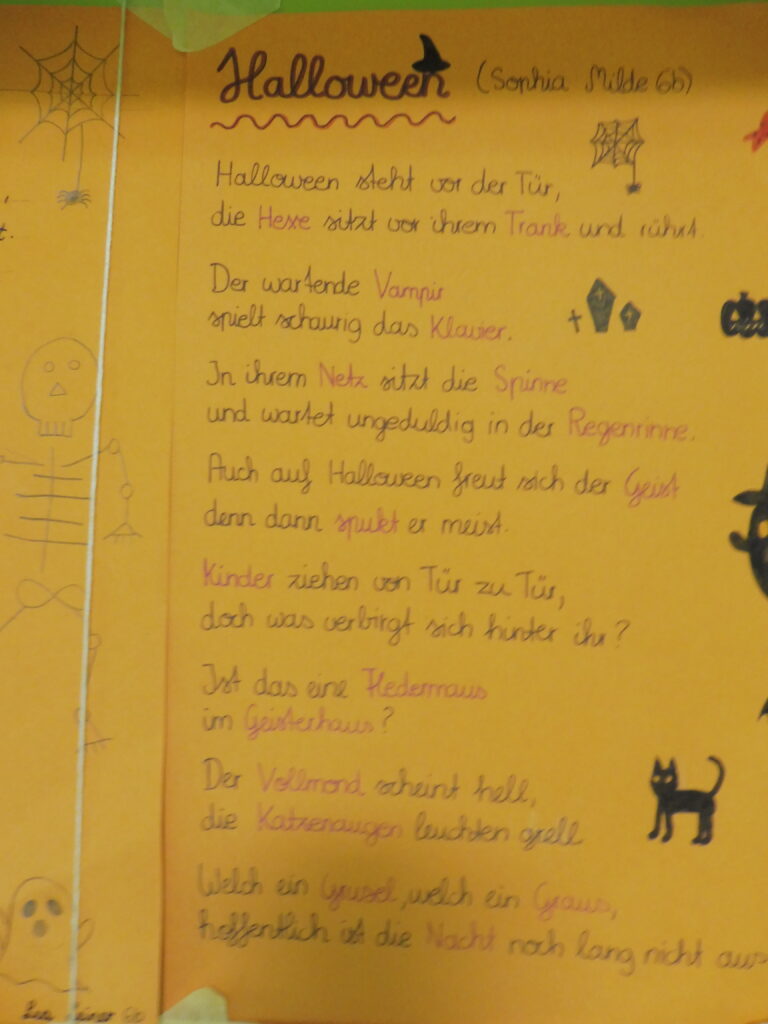 Halloween (Sophia Milde 6b)
Halloween steht vor der Tür,
die Hexe sitzt vor ihrem Trank und rührt.
Der wartende Vampir
spielt schaurig das Klavier.
In ihrem Netz sitzt die Spinne
und wartet ungeduldig in der Regenrinne.
Auch auf Halloween freut sich der Geist
denn dann spukt er meist.
Kinder ziehen von Tür zu Tür,
doch was verbirgt sich hinter ihr?
Ist das eine Fledermaus
im Geisterhaus?
Der Vollmond scheint hell,
die Katzenaugen leuchten grell.
Welch ein Grusel, welch ein Graus,
hoffentlich ist die Nacht noch lang nicht aus
6b